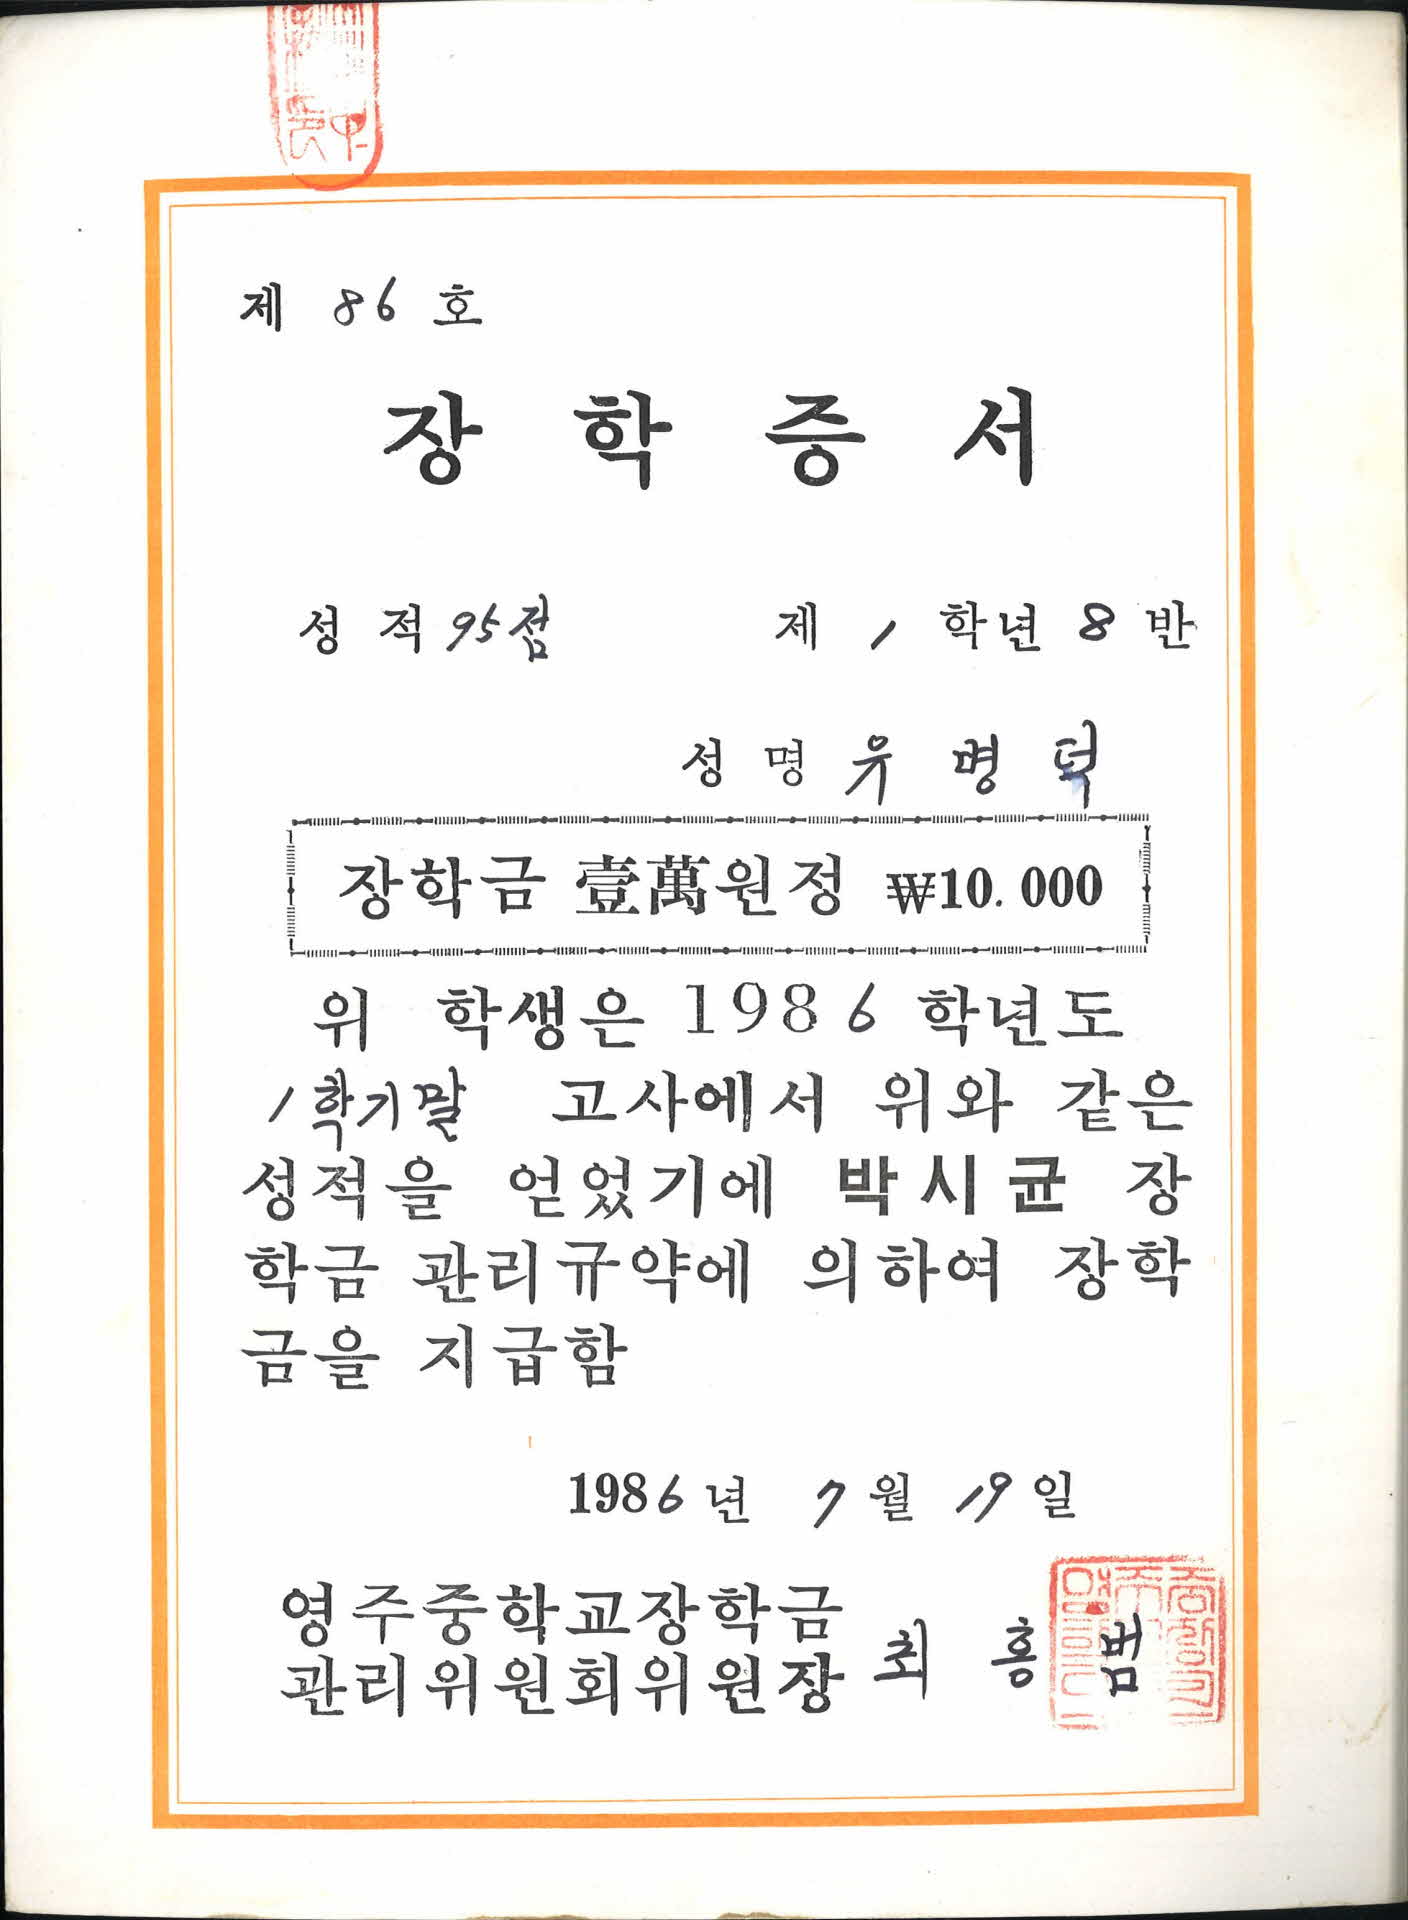 제 86 호
장 학 증 서
성 적 95점 제 1 학년 8 반
성 명 우 병 덕
장학금 壹萬원정 ₩10.000
위 학생은 1986 학년도
1학기말 고사에서 위와 같은
성적을 얻었기에 박시균 장
학금 관리규약에 의하여 장학
금을 지급함
1986 년 7 월 19 일
영주중학교장학금
관리위원회위원장 최 홍 범